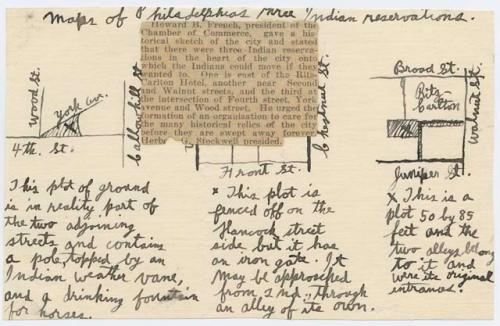 Maps of Philadelphias three Indian reservations.
Howard B. French, president of the
Chamber of Commerce, gave a his-
torical sketch of the city and stated
that there were three Indian reserva-
tions in the heart of the city onto
which the Indians could move if they
wanted to. One is east of the Ritz-
Carlton Hotel, another near Second
and Walnut streets, and the third at
the intersection of Fourth street, York
avenue and Wood street. He urged the
formation of an organization to care for
the many historical relics of the city
before they are swept away forever.
Herbert G. Stockwell presided.
Wood St.
York Ave.
Callowhill St
4th. St.
Chestnut St.
Front St.
Broad St.
Ritz-
Carlton
Walnut St.
Juniper St.
This plot of ground
is in reality part of
the two adjoining
streets and contains
a pole, topped by an
Indian weather vane,
and a drinking fountain
for horses.
x This plot is
fenced off on the
Hancock street
side but it has
an iron gate. It
may be approached
from 2nd., through
an alley of its own.
x This is a
plot 50 by 85
feet and the
two alleys belong
to it and
were its original
entrances.